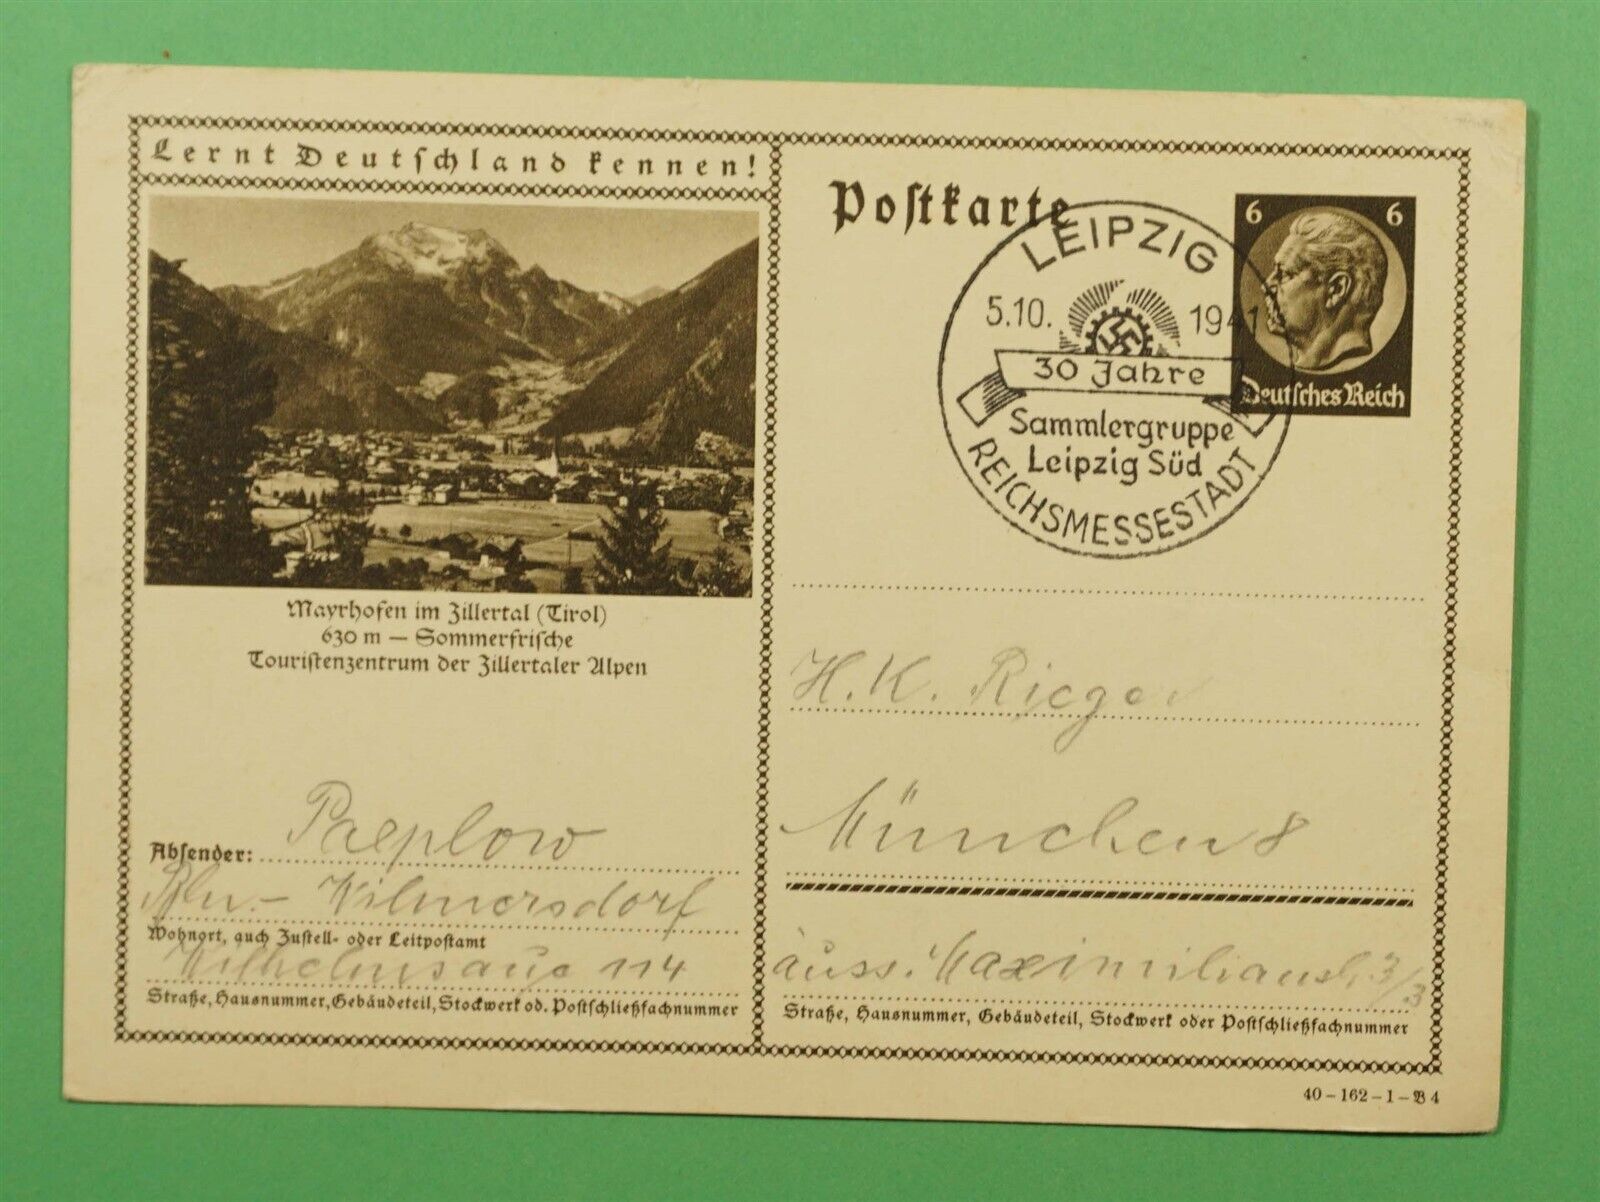 Lernt Deutschland kennen!
Mayrhofen im Zillertal (Tirol)
630 m — Sommerfrische
Touristenzentrum der Zillertaler Alpen
Absender: Paeplow
Bln.- Wilmersdorf
Wohnort, auch Zustell- oder Leitpostamt
Wilhelmsaue 114
Straße, Hausnummer, Gebäudeteil, Stockwerk od. Postschließfachnummer
Postkarte
6 6
Deutsches Reich
LEIPZIG
5.10. 1941
30 Jahre
Sammlergruppe
Leipzig Süd
REICHSMESSESTADT
H. K. Rieger
München 8
äuss. Maximilianstr. 3/3
Straße, Hausnummer, Gebäudeteil, Stockwerk oder Postschließfachnummer
40-162-1-B 4